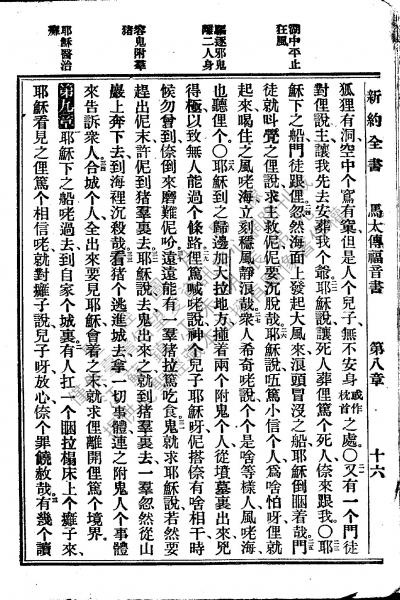 湖中平止
狂風
驅逐邪鬼
離二人身
容鬼附羣
猪
耶穌醫治
癱
新約全書 馬太傳福音書 第八章 十六
狐狸有洞、空中个鳥有窠、但是人个兒子、無不安身或作枕首之處○又有一个門徒
對俚說、主、讓我先去安葬我个爺、耶穌說、讓死人葬俚篤个死人、倷來跟我○耶
穌下之船、門徒跟俚、忽然海面上發起大風來、浪頭冒沒之船、耶穌倒睏着哉、門
徒就呌覺之俚說、求主救伲、伲要沉脫哉、耶穌說、㕶篤小信个人、爲啥怕呀、俚就
起來喝住之風咾海、立刻穩風靜浪哉、衆人希奇咾說、个个是啥等樣人、風咾海
也聽俚个○耶穌到之歸邊加大拉地方、撞着兩个附鬼个人、從墳墓裏出來、兇
得極、以致無人能過个條路、俚篤喊咾說、神个兒子耶穌呀、伲搭倷有啥相干、時
候勿曾到、倷倒來磨難伲吩、遠遠能有一羣猪拉篤吃食、鬼就求耶穌說、若然要
趕出伲末、許伲到猪羣裏去、耶穌說、去、鬼出來之、就到猪羣裏去、一羣忽然從山
巖上奔下去、到海裡沉殺哉、看猪个逃進城去、拿一切事體、連之附鬼人个事體、
來告訴衆人、合城个人全出來要見耶穌、會着之末、就求俚離開俚篤个境界、
第九章 耶穌下之船咾過去、到自家个城裏、有人扛一个睏拉榻床上个癱子來、
耶穌看見之俚篤个相信咾、就對癱子說、兒子呀、放心、倷个罪饒赦哉、有幾个讀